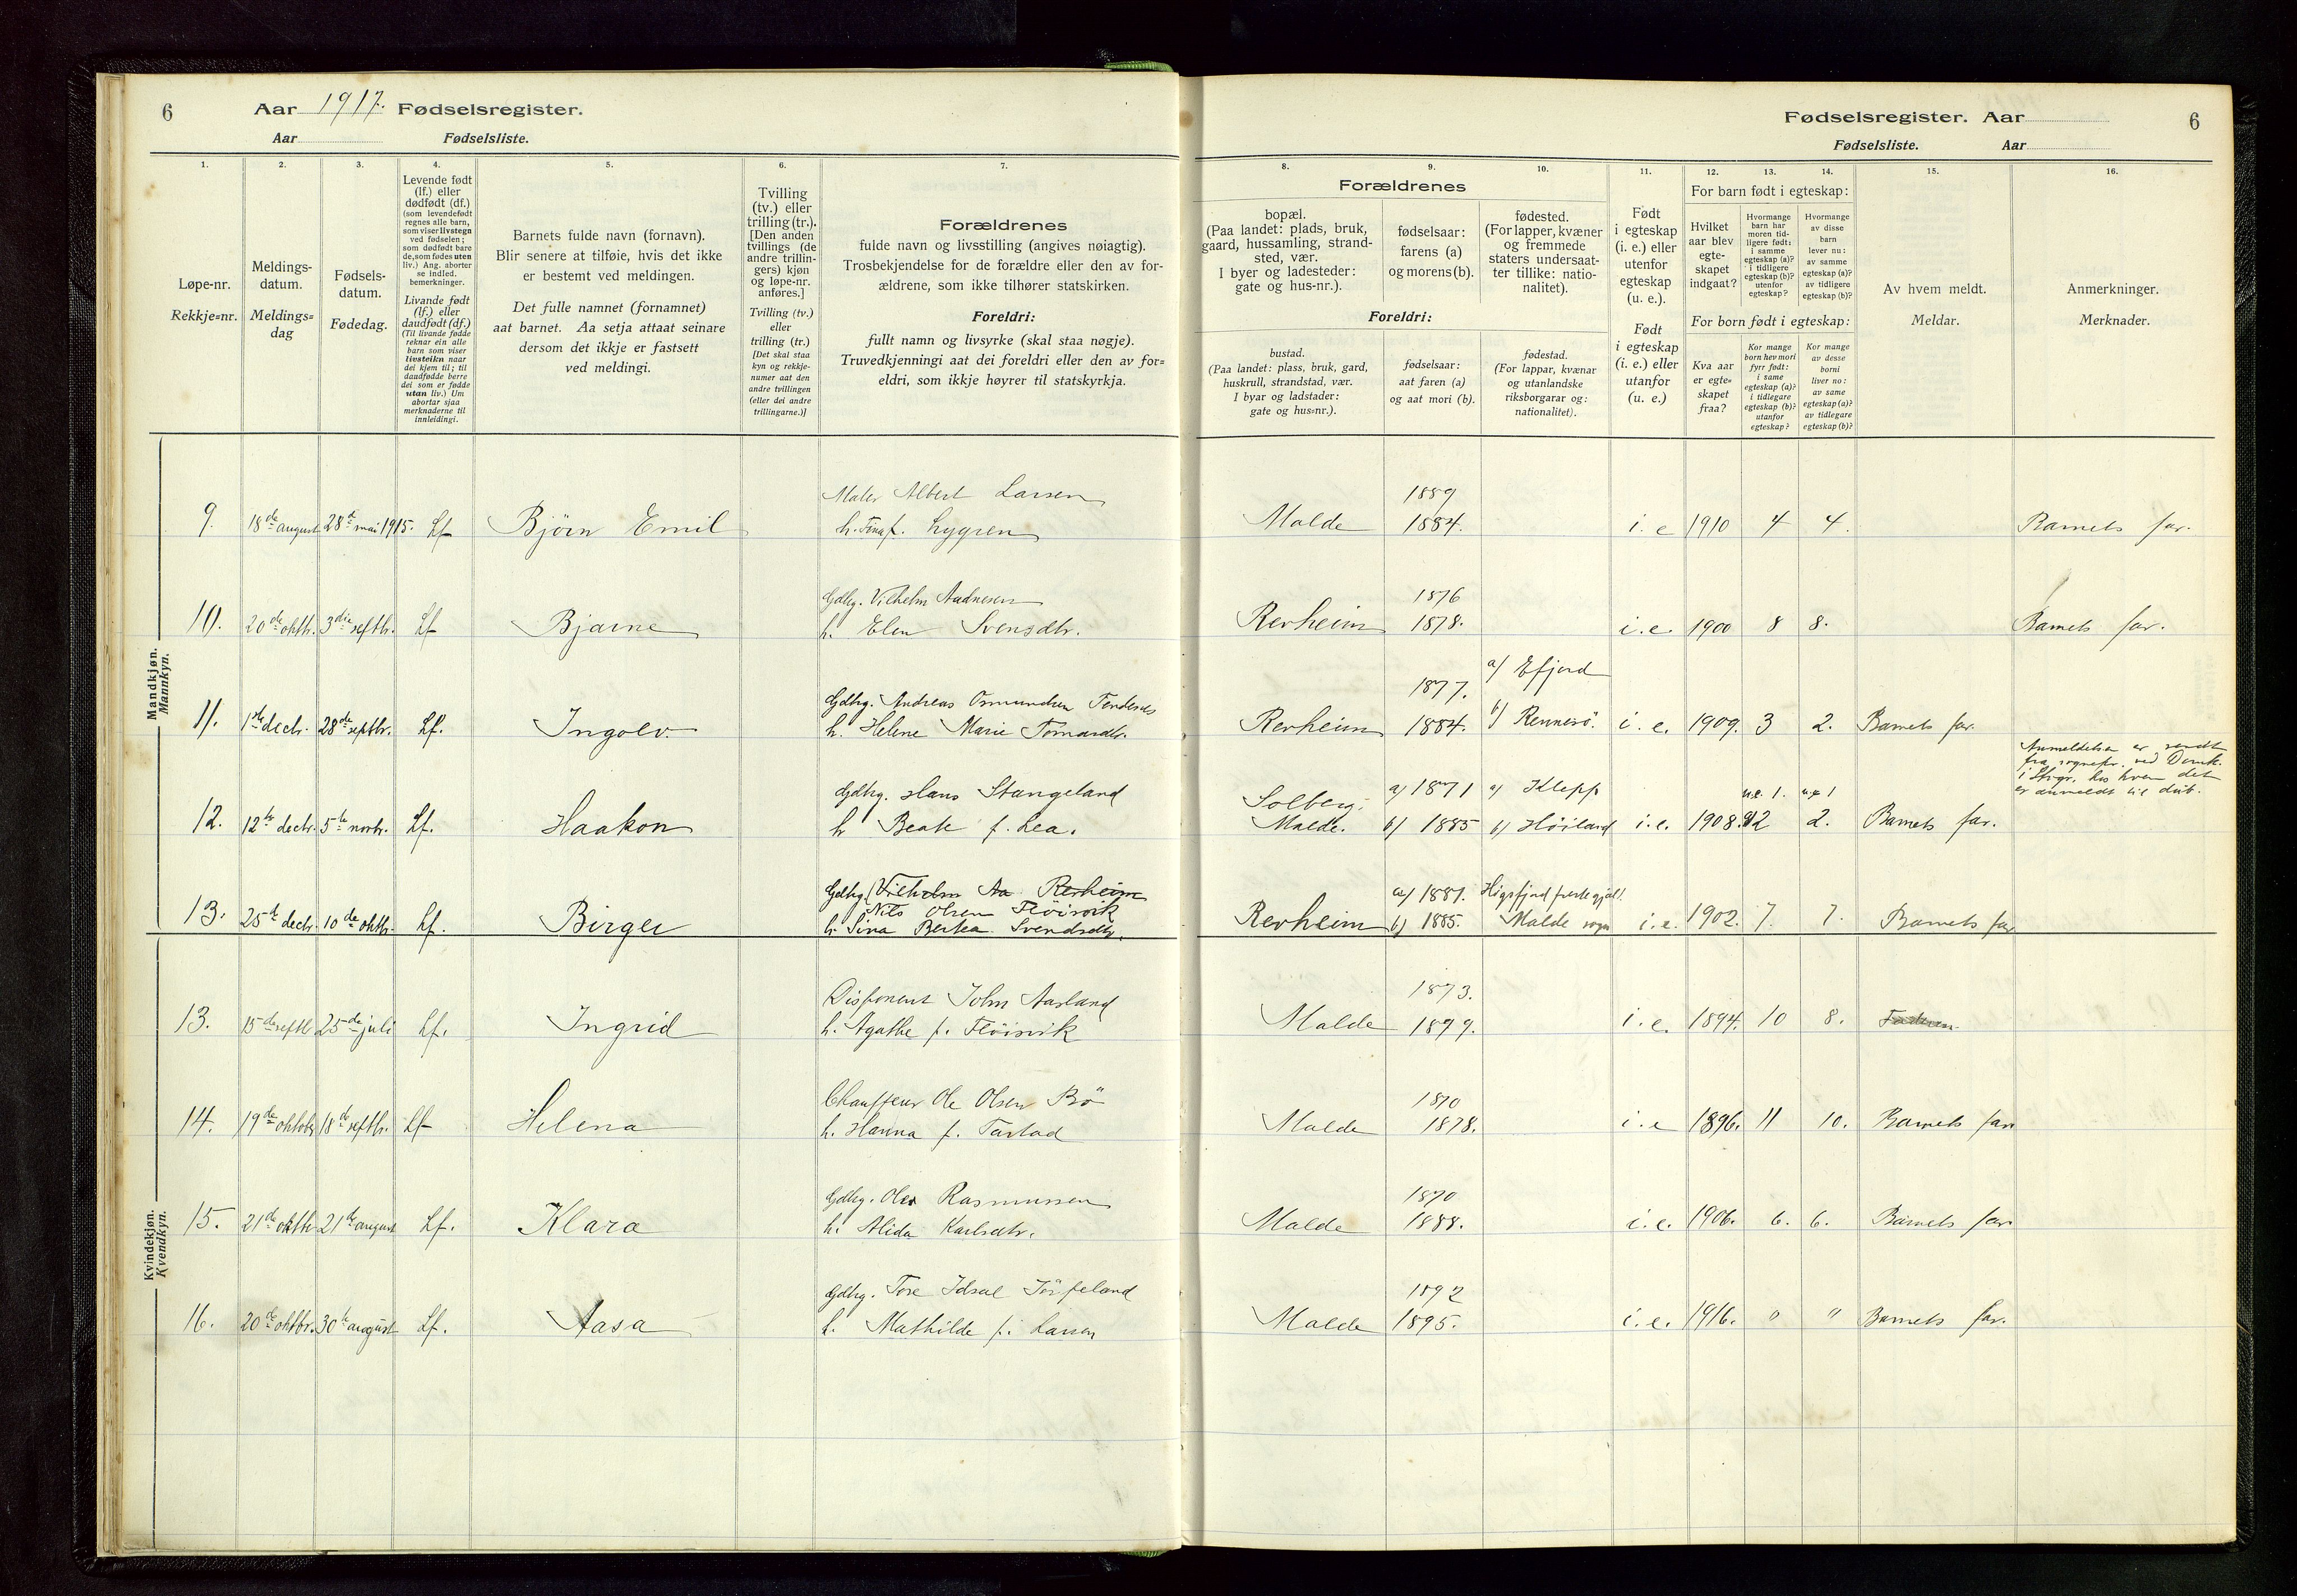 6 Aar 1917. Fødselsregister.
Aar Fødselsliste.
Fødselsregister. Aar 6
Fødselsliste. Aar
1. 2. 3. 4. 5. 6. 7. 8. 9. 10. 11. 12. 13. 14. 15. 16.
Løpe-nr.
Rekkje=nr.
Meldings-
datum.
Meldings=
dag
Fødsels-
datum.
Fødedag.
Levende født
(lf.) eller
dødfødt (df.)
(som levendefødt
regnes alle barn,
som viser livstegn
ved fødselen;
som dødfødt bare
de, som fødes uten
liv.) Ang. aborter
se indled.
bemerkninger.
Livande født
(lf.) eller
daudfødt (df.)
(Til livande fødde
reknar ein alle
barn som viser
livsteikn naar
dei kjem til; til
daudfødde berre
dei som er fødde
utan liv.) Um
abortar sjaa
merknaderne til
innleidingi.
Barnets fulde navn (fornavn).
Blir senere at tilføie, hvis det ikke
er bestemt ved meldingen.
Det fulle namnet (fornamnet)
aat barnet. Aa setja attaat seinare
dersom det ikkje er fastsett
ved meldingi.
Tvilling
(tv.) eller
trilling (tr.).
[Den anden
tvillings (de
andre trillin-
gers) kjøn
og løpe-nr.
anføres.]
Tvilling (tv.)
eller
trilling (tr.)
[Det skal staa
kyn og rekkje-
numer aat den
andre tvillingen
(eller dei andre
trillingarne.)]
Forældrenes
fulde navn og livsstilling (angives nøiagtig).
Trosbekjendelse for de forældre eller den av for-
ældrene, som ikke tilhører statskirken.
Foreldri:
fullt namn og livsyrke (skal staa nøgje).
Truvedkjenningi aat dei foreldri eller den av for-
eldri, som ikkje høyrer til statskyrkja.
Forældrenes
bopæl.
(Paa landet: plads, bruk,
gaard, hussamling, strand-
sted, vær.
I byer og ladesteder:
gate og hus-nr.).
fødselsaar:
farens (a)
og morens (b).
fødested.
(For lapper, kvæner
og fremmede
staters undersaat-
ter tillike: natio-
nalitet).
Foreldri:
bustad.
(Paa landet: plass, bruk, gard,
huskrull, strandstad, vær.
I byar og ladstader:
gate og hus=nr.).
fødselsaar:
aat faren (a)
og aat mori (b).
fødestad.
(For lappar, kvænar
og utanlandske
riksborgarar og:
nationalitet).
Født
i egteskap
(i. e.) eller
utenfor
egteskap
(u. e.).
Født
i egteskap
(i. e.) eller
utanfor
(u. e.)
For barn født i egteskap:
Hvilket
aar blev
egte-
skapet
indgaat?
Hvormange
barn har
moren tid-
ligere født:
i samme
egteskap (a)?
i tidligere
egteskap (b)?
utenfor
egteskap?
Hvormange
av disse
barn
lever nu:
av samme
egteskap (a)?
av tidligere
egteskap (b)?
For born født i egteskap:
Kva aar
er egte=
skapet
fraa?
Kor mange
born hev mori
fyrr født:
i same
egteskap (a)?
i tidlegare
egteskap (b)?
utanfor
egteskap?
Kor mange
av desse
borni
liver no:
av same
egteskap (a)?
av tidlegare
egteskap (b)?
Av hvem meldt.
Meldar.
Anmerkninger.
Merknader.
Mandkjøn.
Mannkyn.
9. 18de august 28de mai 1915. Lf Bjørn Emil Maler Albert Larsen
h. Tina f. Lygren Malde 1889 1884. i. e 1910 4 4. Barnets far.
10. 20de oktbr. 3die septbr. Lf Bjarne Gdbg. Vilhelm Aadnesen
h. Elen Svensdtr. Revheim 1876 1878. i. e. 1900 8 8. Barnets far.
11. 1ste decbr. 28de septbr. Lf. Ingolv. Gdbrg. Andreas Osmundsen
h. Helene Marie Revheim 1877. 1884. a/ Efjord b/ Rennesö. i. e. 1909. 3 2. Barnets far.
Anmeldelsen er sendt
fra sognepr. ved Domk.
i Stvgr. hos hvem det
er anmeldt til daab.
12. 12te decbr. 5te novbr. Lf. Haakon Gdbrg. Hans Stangeland
h Beate f. Lea. Solberg, Malde. a/ 1871 b/ 1885 a/ Klepp b/ Höiland i. e. 1908. u.e. 1. 2 u.e 1 2. Barnets far.
13. 25de decbr. 10de oktbr. Lf. Birger Gdbrg. Vilhelm Aa Revheim
Nils Olsen Flöisvik
h. Sina Berta Svendsdtr. Revheim a/ 1881. b/ 1885. Malde sogn i. e. 1902. 7. 7. Barnets far
Kvindekjøn.
Kvendkyn.
13. 15de septbr 25de juli Lf. Ingrid Disponent John Aasland
h. Agathe f. Flöisvik Malde 1873. 1877. i. e. 1894. 10 8.
14. 19de oktober 18de septbr. Lf Helena Chauffeur Ole Olsen Bö
h. Hanna f. Tastad Malde 1870 1878. i. e 1896. 11 10. Barnets far
15. 21de oktbr 21de august Lf. Klara Gdbrg. Ole Rasmussen
h. Alida Karlsdtr. Malde 1870 1888. i. e. 1906. 6. 6. Barnets far
16. 20de oktbr. 30te august Lf. Aasa Gdbrg. Tore Idsal Jörpeland
h. Mathilde f. Larsen Malde 1892 1895. i. e. 1916. " " Barnets far.